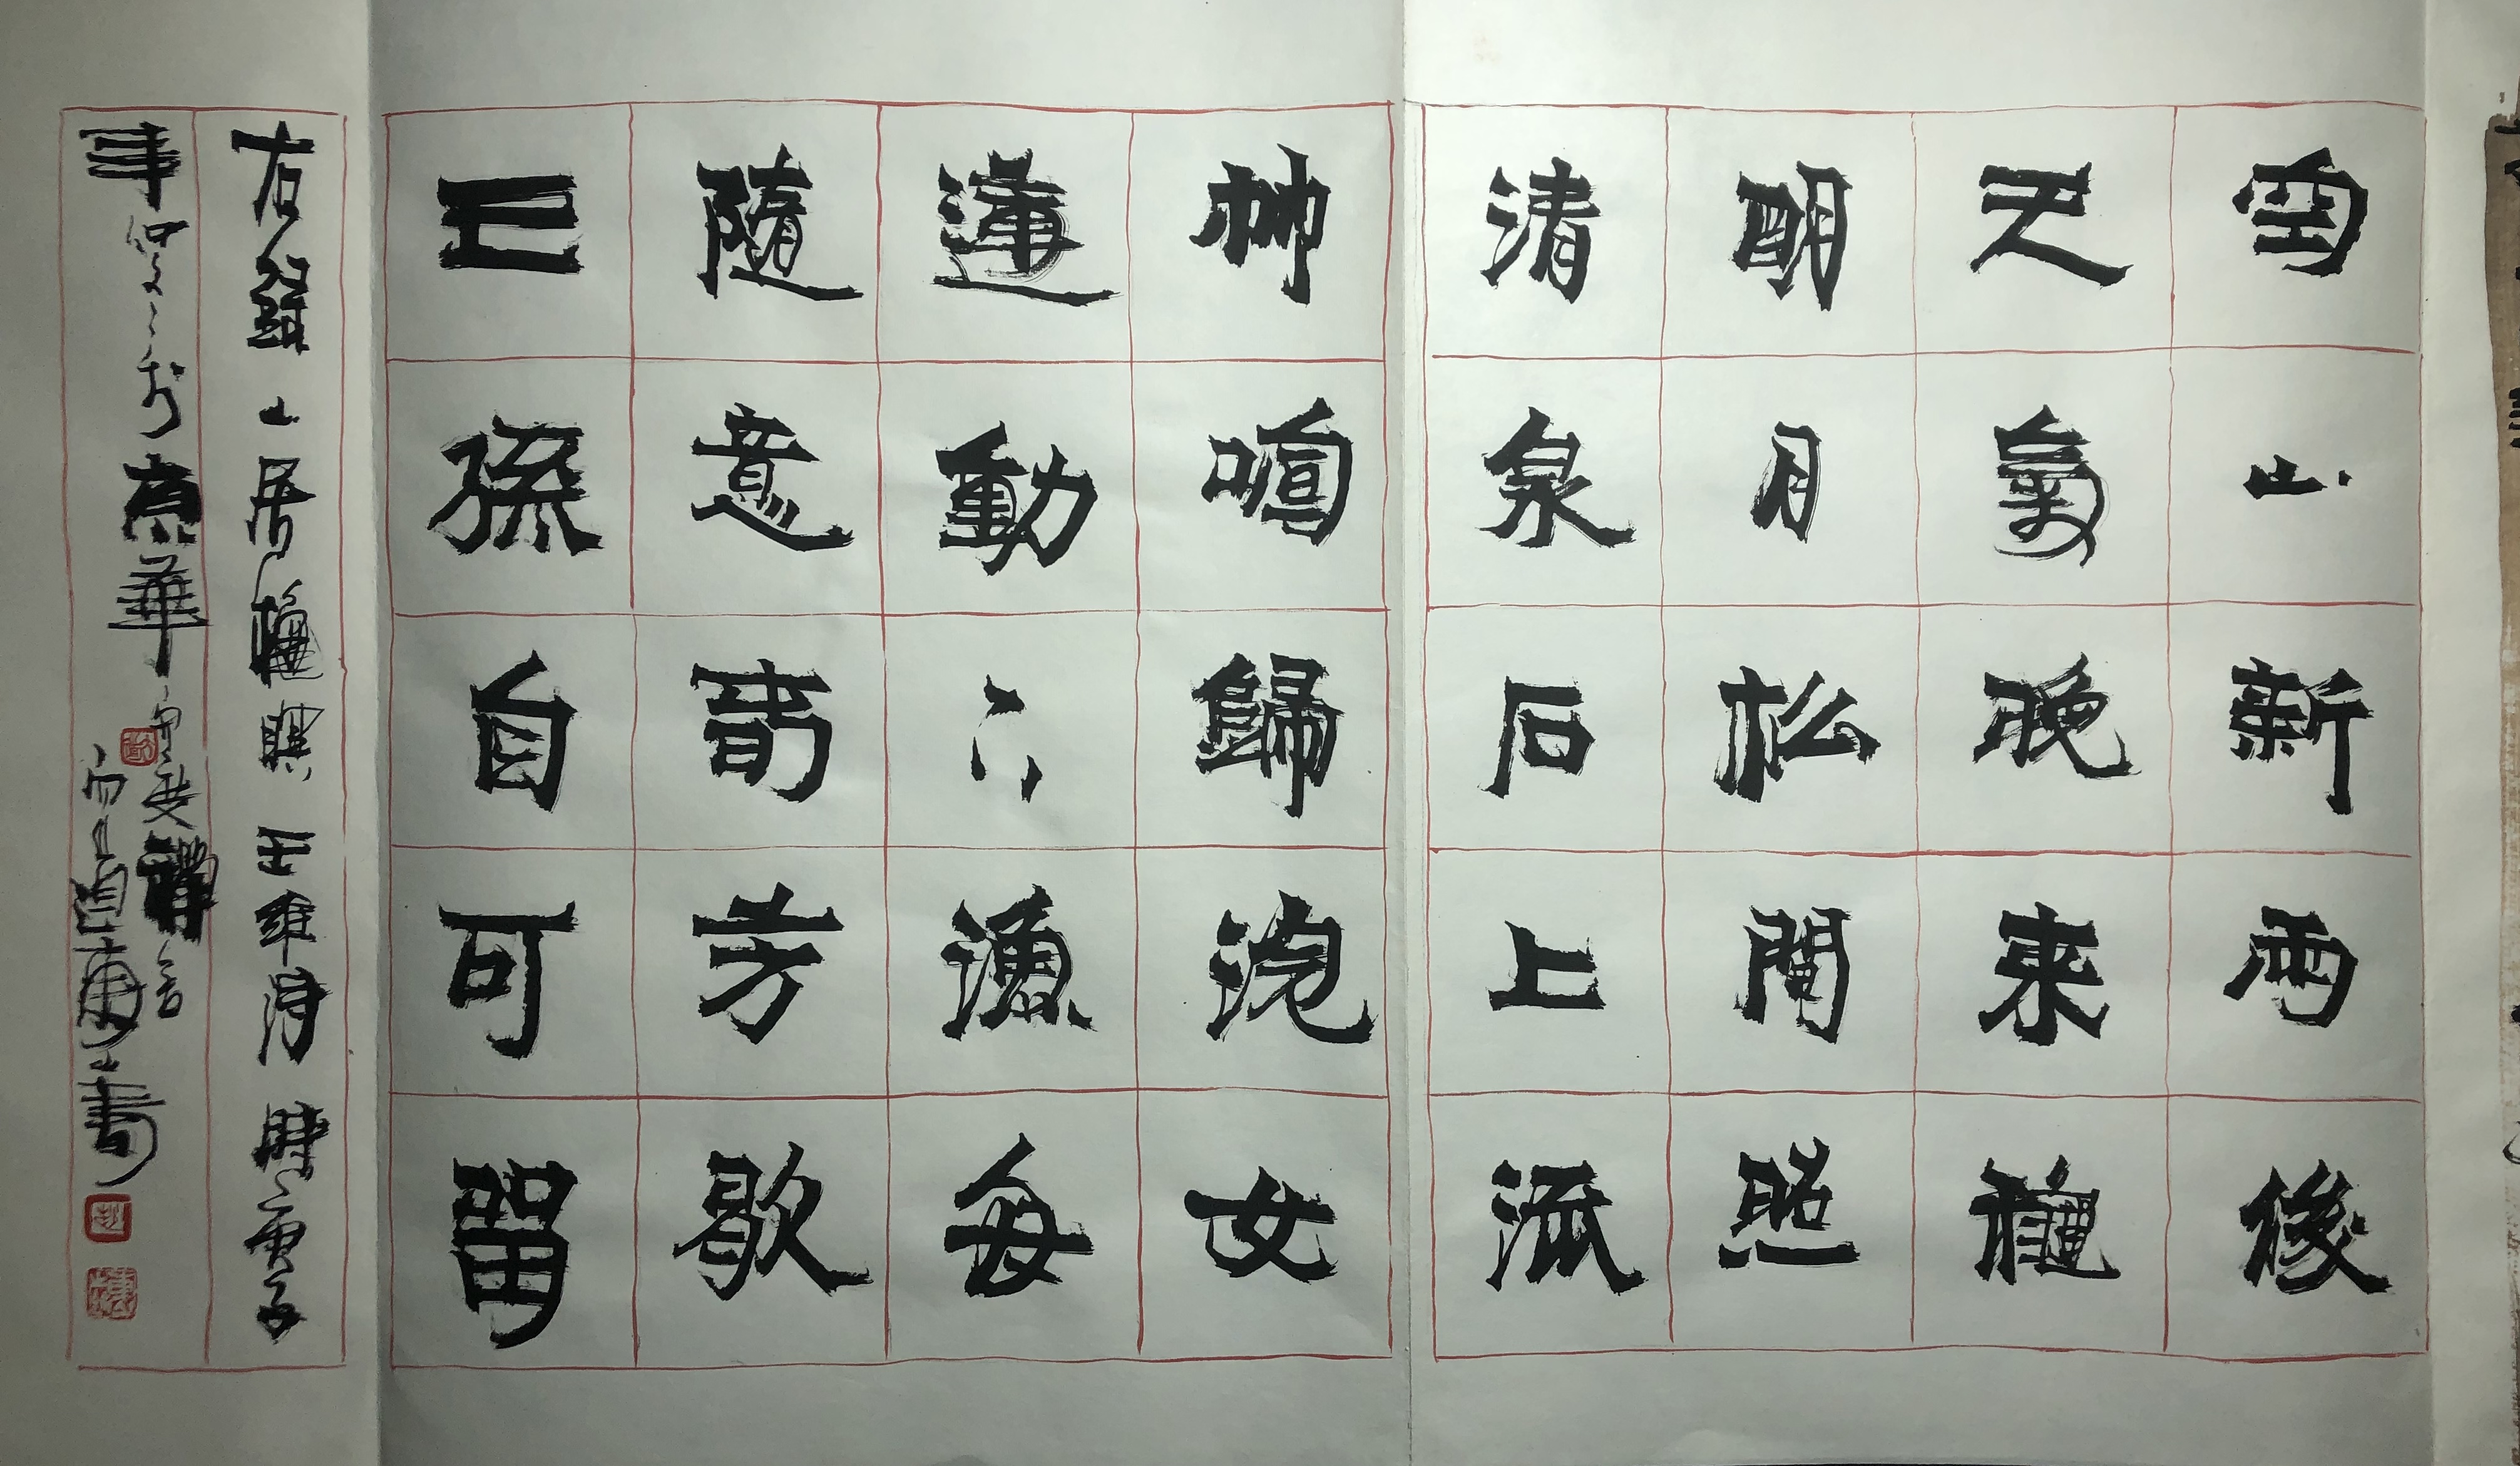 空山新雨後
天氣晚来龝
明月松間照
清泉石上流
竹喧歸浣女
蓮動下漁舟
隨意春芳歇
王孫自可留
右録山居龝暝王維詩時庚子
年仲冬於京華 書